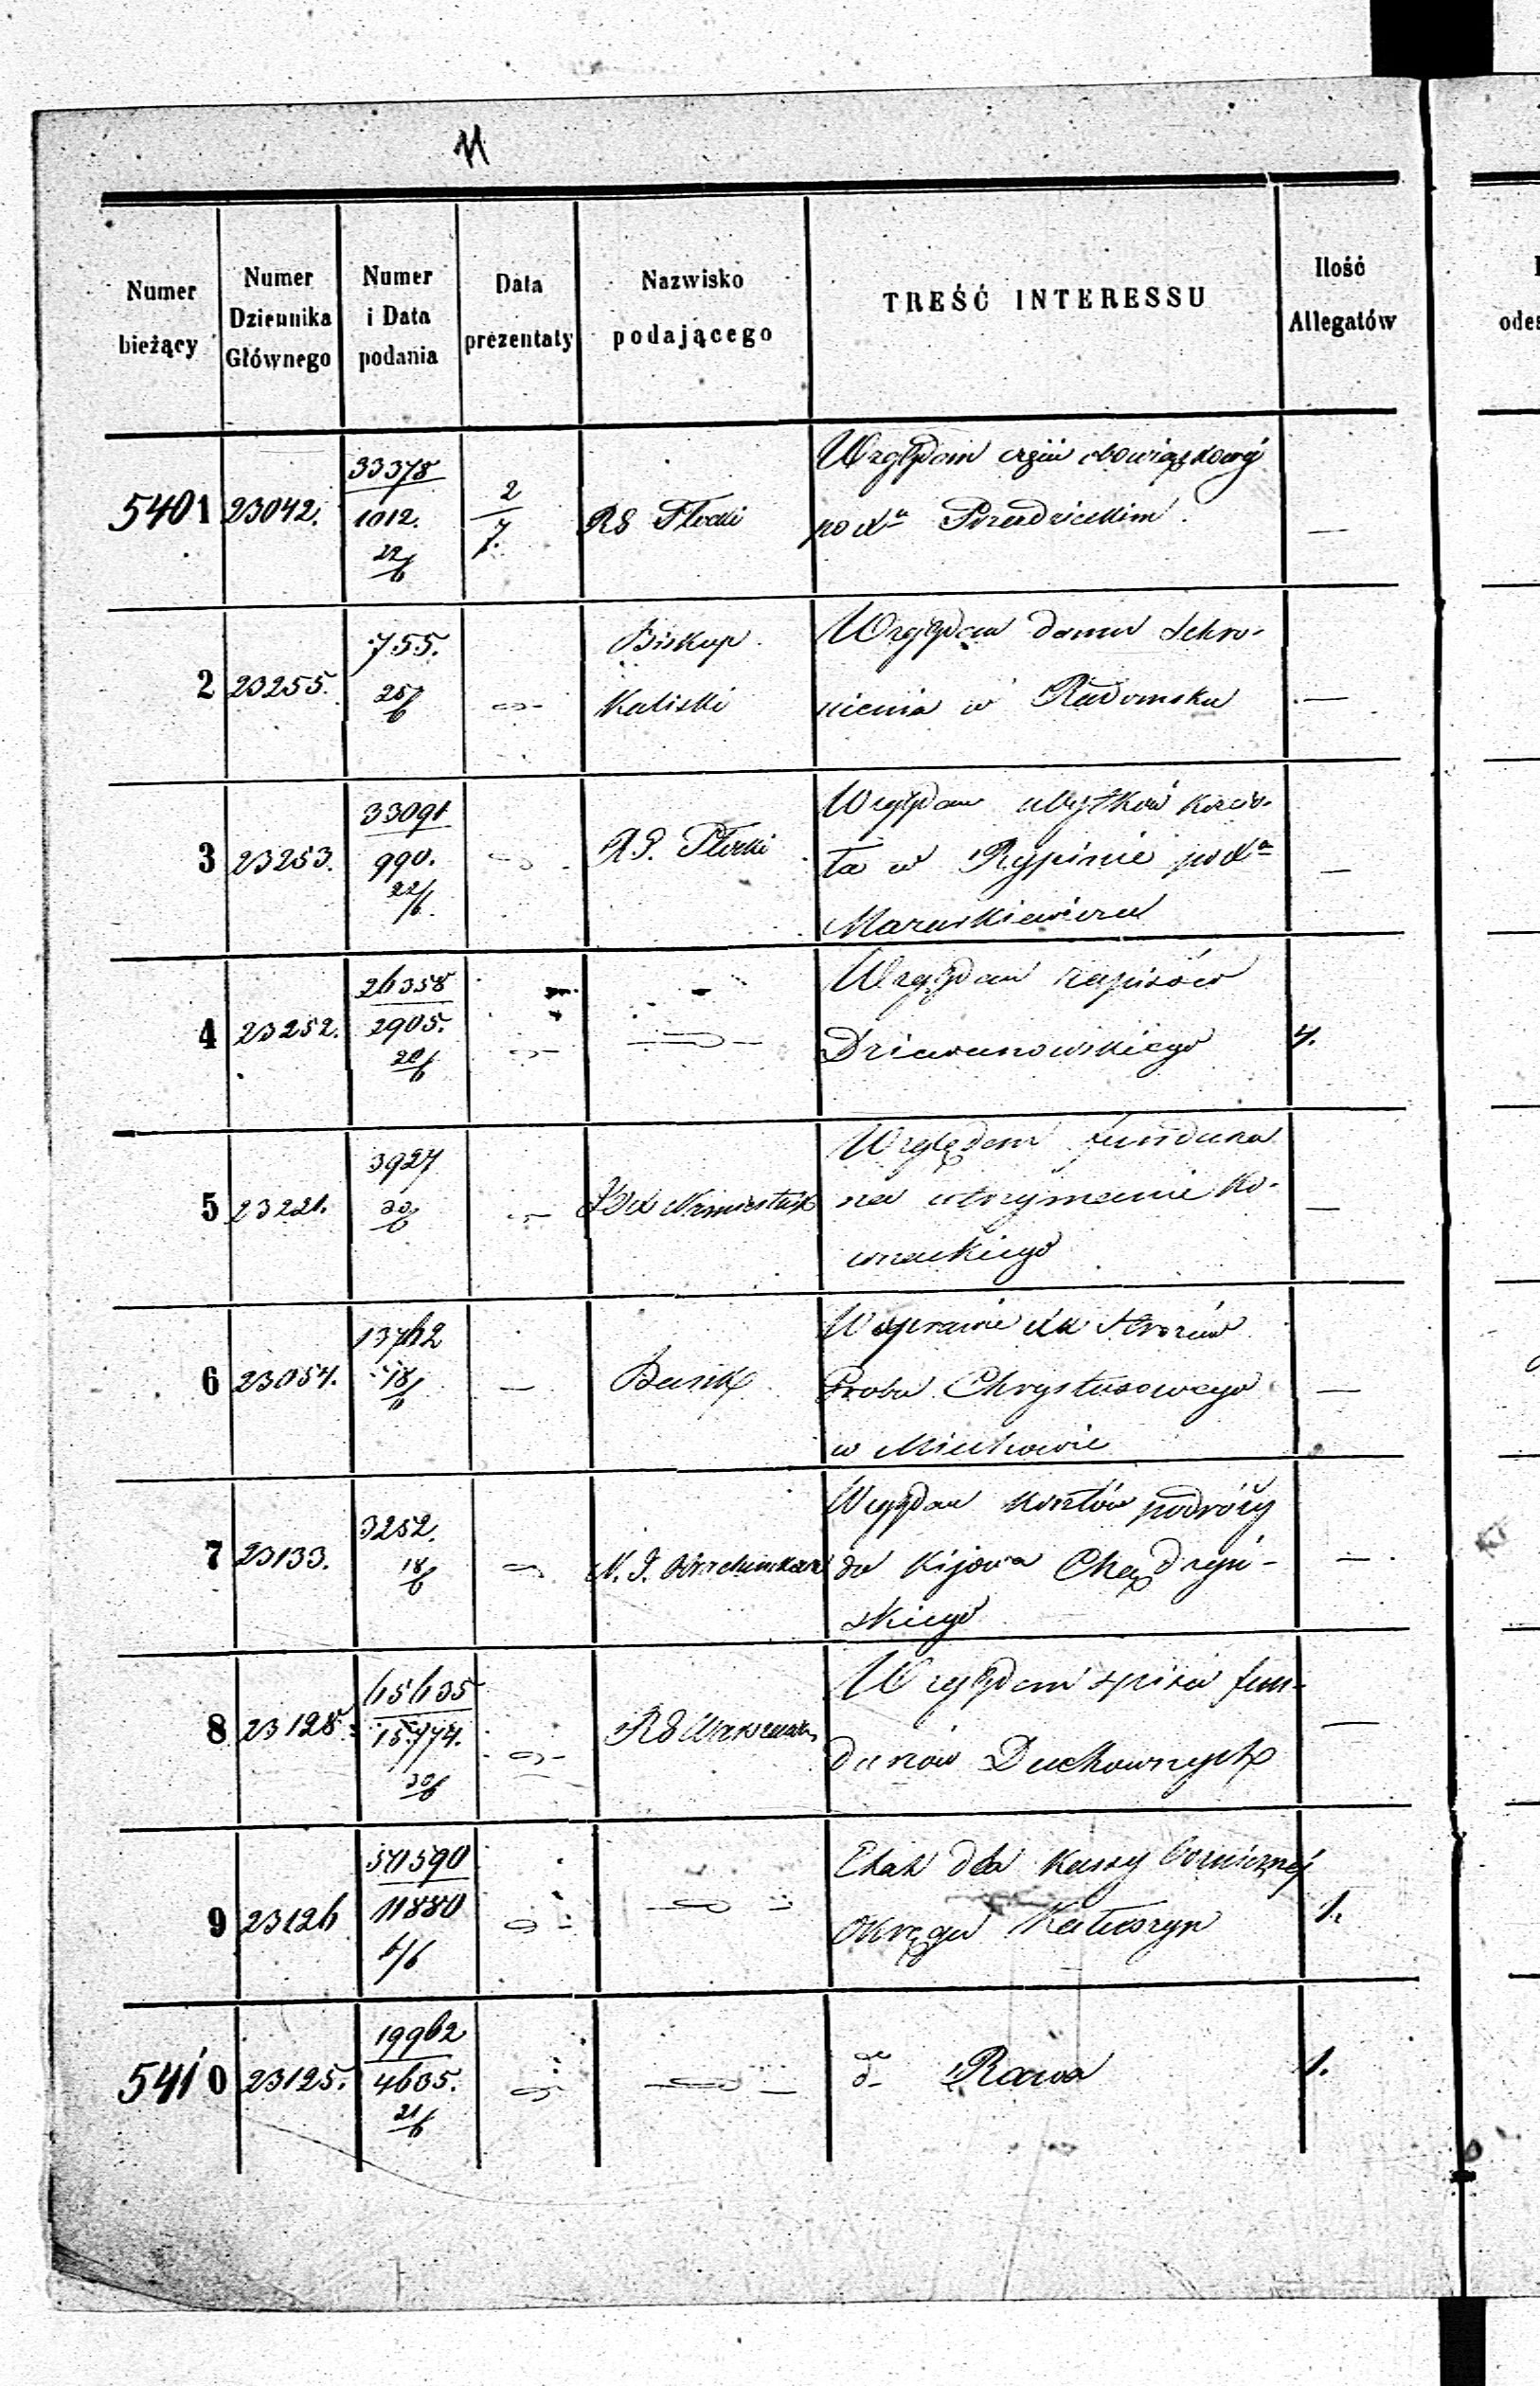 11
Numer bieżący
Numer Dziennika Głównego
Numer i Data podania
Data prezentaty
Nazwisko podającego
TREŚĆ INTERESSU
Ilość Allegatów
5401 23042. 33378 1012. 22/6 2/7. RG Płocki Względem obowiązkowej
po Xu —
2 23255. 755. 25/6 Biskup Kaliski Względem domu schro-
nienia w Radomsku —
3 23253. 33091 990. 22/6. R.G. Płocki Względem użytków kościo-
ła w Rypinie po Xu —
4 23252. 26358 2905. 20/6 Względem zapisów
Dziewanowskiego 4.
5 23221. 3927 30/6 Namiestnik Względem fundusza
na utrzymanie Ko-
wnackiego —
6 23054. 13762 18/6 — Bank W sprawie XX Stróżów
Grobu Chrystusowego
w Miechowie —
7 23133. 3252. 18/6 Względem kosztów podróży
do Kijowa Chądzyń-
skiego —
8 23128. 65635 15774. 30/6 RG Warszaw. Względem spisu fun-
duszów Duchownych —
9 23126 50590 11880 6/6 Etat dla Kassy
Okręgu Kałuszyn 1.
5410 23125. 19962 4635. 21/6 do Rawa 1.